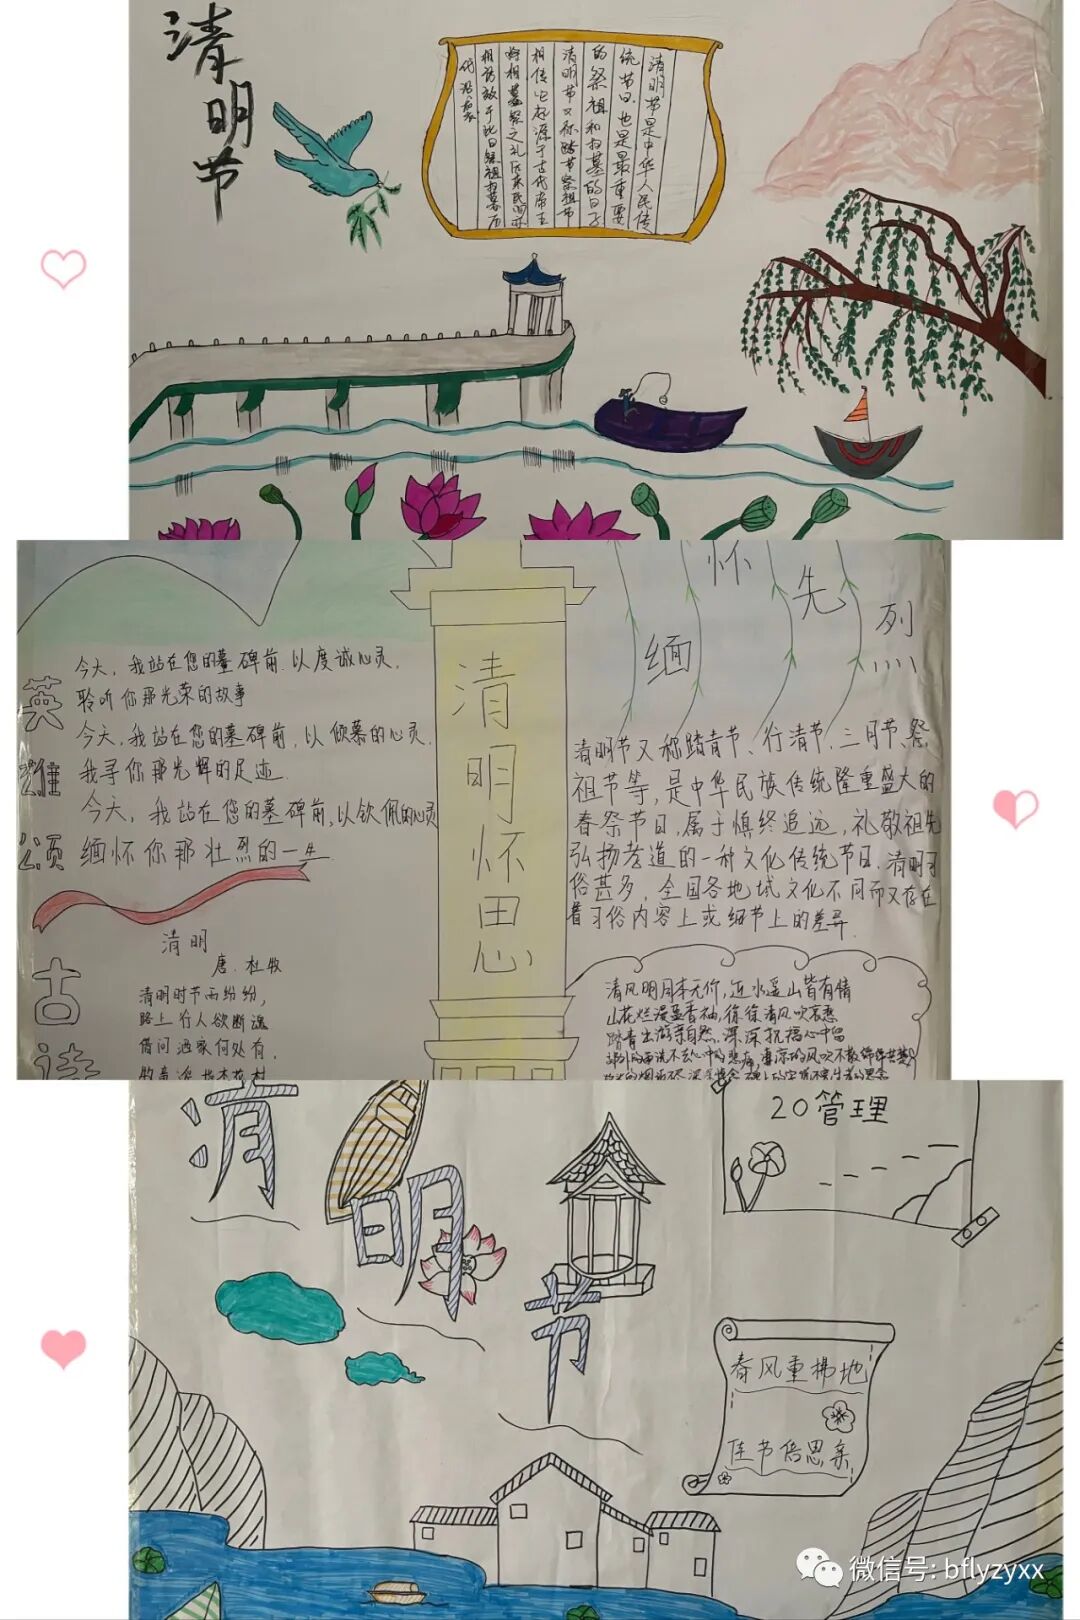 清明节
清明节是中华人民传
统节日.也是最重要
的祭祖和扫墓的日子
清明节又称踏节祭祖节
相传它起源于古代帝王
将相墓祭之礼后来民间亦
相
代沿袭
缅怀先烈
清明怀思
英雄颂
今天,我站在您的墓碑前.以虔诚心灵.
聆听你那光荣的故事
今天,我站在您的墓碑前,以倾慕的心灵.
我寻你那光辉的足迹.
今天,我站在您的墓碑前,以钦佩的心灵
缅怀你那壮烈的一生
清明节又称踏青节、行清节.三月节、祭
祖节等,是中华民族传统隆重盛大的
春祭节日,属于慎终追远,礼敬祖先
弘扬孝道的一种文化传统节日.清明习
俗甚多,全国各地域文化不同而又存在
着习俗内容上或细节上的差异.
古诗
清明
唐.杜牧
清明时节雨纷纷,
路上行人欲断魂
借问酒家何处有,
清风明月本无价,近水遥山皆有情
山花烂漫盈香袖,徐徐清风吹哀愁
踏青出游亲自然.深深祝福心中留
20管理
清明节
春风重拂地
佳节倍思亲
微信号: bflyzyxx